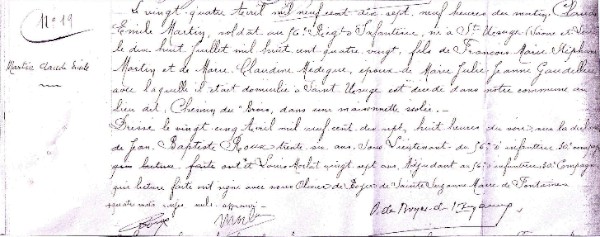 N° 19
Martin Claude Emile
Le vingt quatre Avril mil neuf cent dix sept, neuf heures du matin, Claude
Emile Martin, soldat au 56e Regt Infanterie, né à St Usuge (Saone et Loire)
le dix huit Juillet mil huit cent quatre vingt, fils de François Marie Stéphane
Martin et de Marie Claudine Médigue, époux de Marie Julie Jeanne Gaudillère
avec laquelle il était domicilié à Saint Usuge est décédé dans notre commune au
lieu dit Chemin du Bois, dans une maisonnette isolée. —
Dressé le vingt cinq Avril mil neuf cent dix sept, huit heures du soir sur la déclaration
de Jean Baptiste Roux trente six ans Sous Lieutenant du 56e d'infanterie 10e compagnie
que lecture faite ont et Louis Morlot vingt sept ans, Adjudant au 56e d'infanterie 10e Compagnie
qui lecture faite ont signé avec nous Olivier de Boyer de Sainte Suzanne Maire de Fontaines
quatre mots rayés nuls